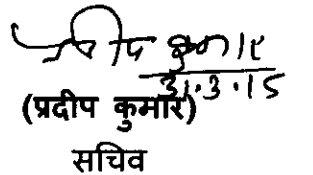 प्रदीप कुमार
31.3.15
(प्रदीप कुमार)
सचिव